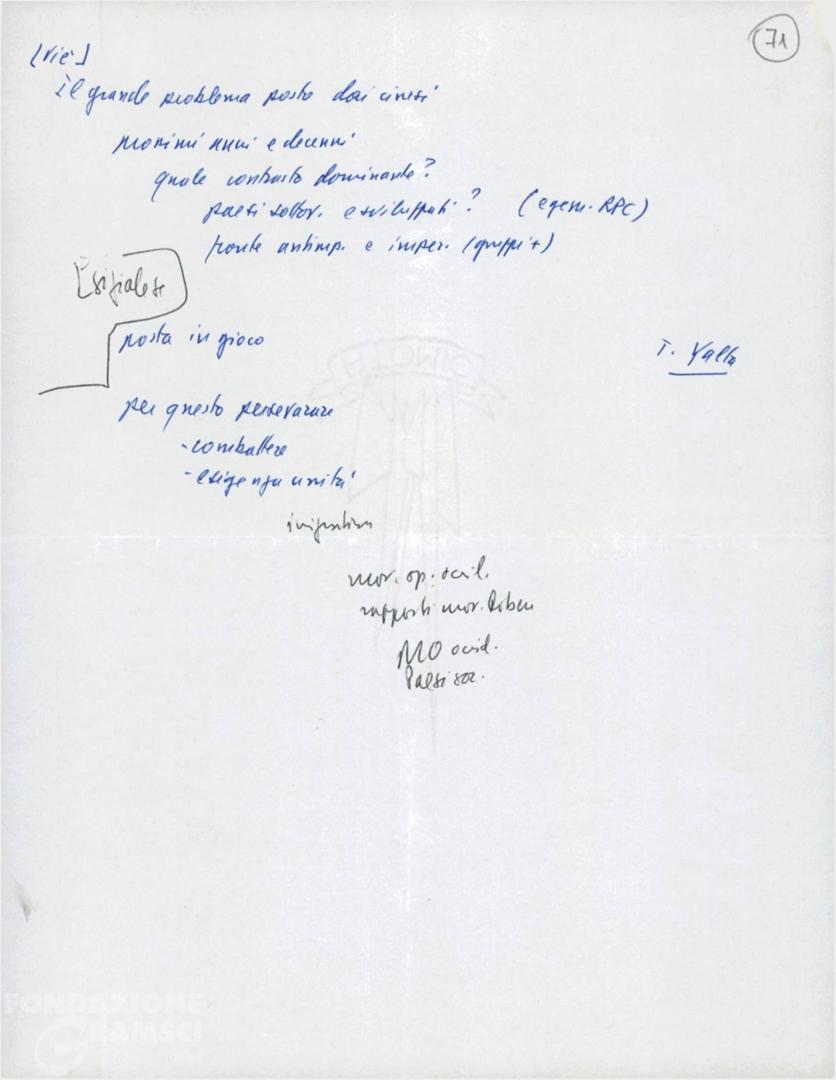 71
[Vie]
Il grande problema posto dai cinesi
prossimi anni e decenni
quale contrasto dominante?
paesi sottosv. e sviluppati? (egem. RPC)
fronte antimp. e imper. (gruppi +)
posta in gioco
T. Yalta
per questo perseverare
- combattere
- esigenza unità
mov. op. occid.
rapporti mov. liberaz
MO occid.
Paesi soc.
FONDAZIONE
GRAMSCI